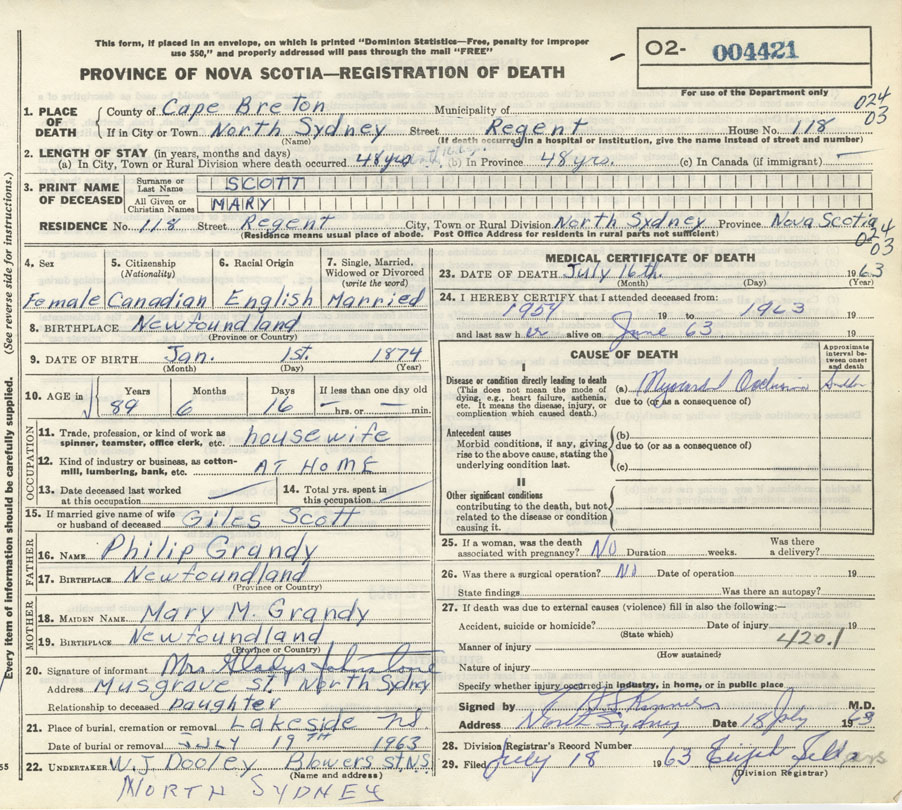 This form, if placed in an envelope, on which is printed "Dominion Statistics—Free, penalty for improper
use $50," and properly addressed will pass through the mail "FREE"
PROVINCE OF NOVA SCOTIA—REGISTRATION OF DEATH
O2- 004421
For use of the Department only
024
03
1. PLACE OF DEATH
County of Cape Breton Municipality of
If in City or Town North Sydney Street Regent House No. 118
(Name) (If death occurred in a hospital or institution, give the name instead of street and number)
2. LENGTH OF STAY (in years, months and days)
(a) In City, Town or Rural Division where death occurred 48 yrs (b) In Province 48 yrs. (c) In Canada (if immigrant) —
3. PRINT NAME OF DECEASED
Surname or Last Name SCOTT
All Given or Christian Names MARY
RESIDENCE No. 118 Street Regent City, Town or Rural Division North Sydney Province Nova Scotia
(Residence means usual place of abode. Post Office Address for residents in rural parts not sufficient)
024
03
4. Sex 5. Citizenship (Nationality) 6. Racial Origin 7. Single, Married, Widowed or Divorced (write the word)
Female Canadian English Married
8. BIRTHPLACE Newfoundland
(Province or Country)
9. DATE OF BIRTH Jan. 1st. 1874
(Month) (Day) (Year)
10. AGE in Years Months Days If less than one day old
89 6 16 — hrs. or — min.
OCCUPATION
11. Trade, profession, or kind of work as spinner, teamster, office clerk, etc. housewife
12. Kind of industry or business, as cotton-mill, lumbering, bank, etc. AT HOME
13. Date deceased last worked at this occupation
14. Total yrs. spent in this occupation
15. If married give name of wife or husband of deceased Giles Scott
FATHER
16. NAME Philip Grandy
17. BIRTHPLACE Newfoundland
(Province or Country)
MOTHER
18. MAIDEN NAME Mary M. Grandy
19. BIRTHPLACE Newfoundland
(Province or Country)
20. Signature of informant Mrs Gladys Johnstone
Address Musgrave St. North Sydney
Relationship to deceased Daughter
21. Place of burial, cremation or removal Lakeside
Date of burial or removal JULY 19TH 1963
22. UNDERTAKER W. J. Dooley Blowers st, N.S.
(Name and address)
NORTH SYDNEY
MEDICAL CERTIFICATE OF DEATH
23. DATE OF DEATH July 16th. 1963
(Month) (Day) (Year)
24. I HEREBY CERTIFY that I attended deceased from:
19 to 1963 19
and last saw her alive on June 63 19
CAUSE OF DEATH
Approximate interval between onset and death
I
Disease or condition directly leading to death
(This does not mean the mode of dying, e.g., heart failure, asthenia, etc. It means the disease, injury, or complication which caused death.)
(a) Myocardial Occlusion
due to (or as a consequence of)
Antecedent causes
Morbid conditions, if any, giving rise to the above cause, stating the underlying condition last.
(b)
due to (or as a consequence of)
(c)
II
Other significant conditions
contributing to the death, but not related to the disease or condition causing it.
25. If a woman, was the death associated with pregnancy? NO Duration weeks. Was there a delivery?
26. Was there a surgical operation? NO Date of operation 19
State findings Was there an autopsy?
27. If death was due to external causes (violence) fill in also the following:—
Accident, suicide or homicide? Date of injury 19
(State which)
420.1
Manner of injury
(How sustained)
Nature of injury
Specify whether injury occurred in industry, in home, or in public place
Signed by M.D.
Address North Sydney Date 18 July 19
28. Division Registrar's Record Number
29. Filed July 18 1963
(Division Registrar)
Every item of information should be carefully supplied. (See reverse side for instructions.)
55